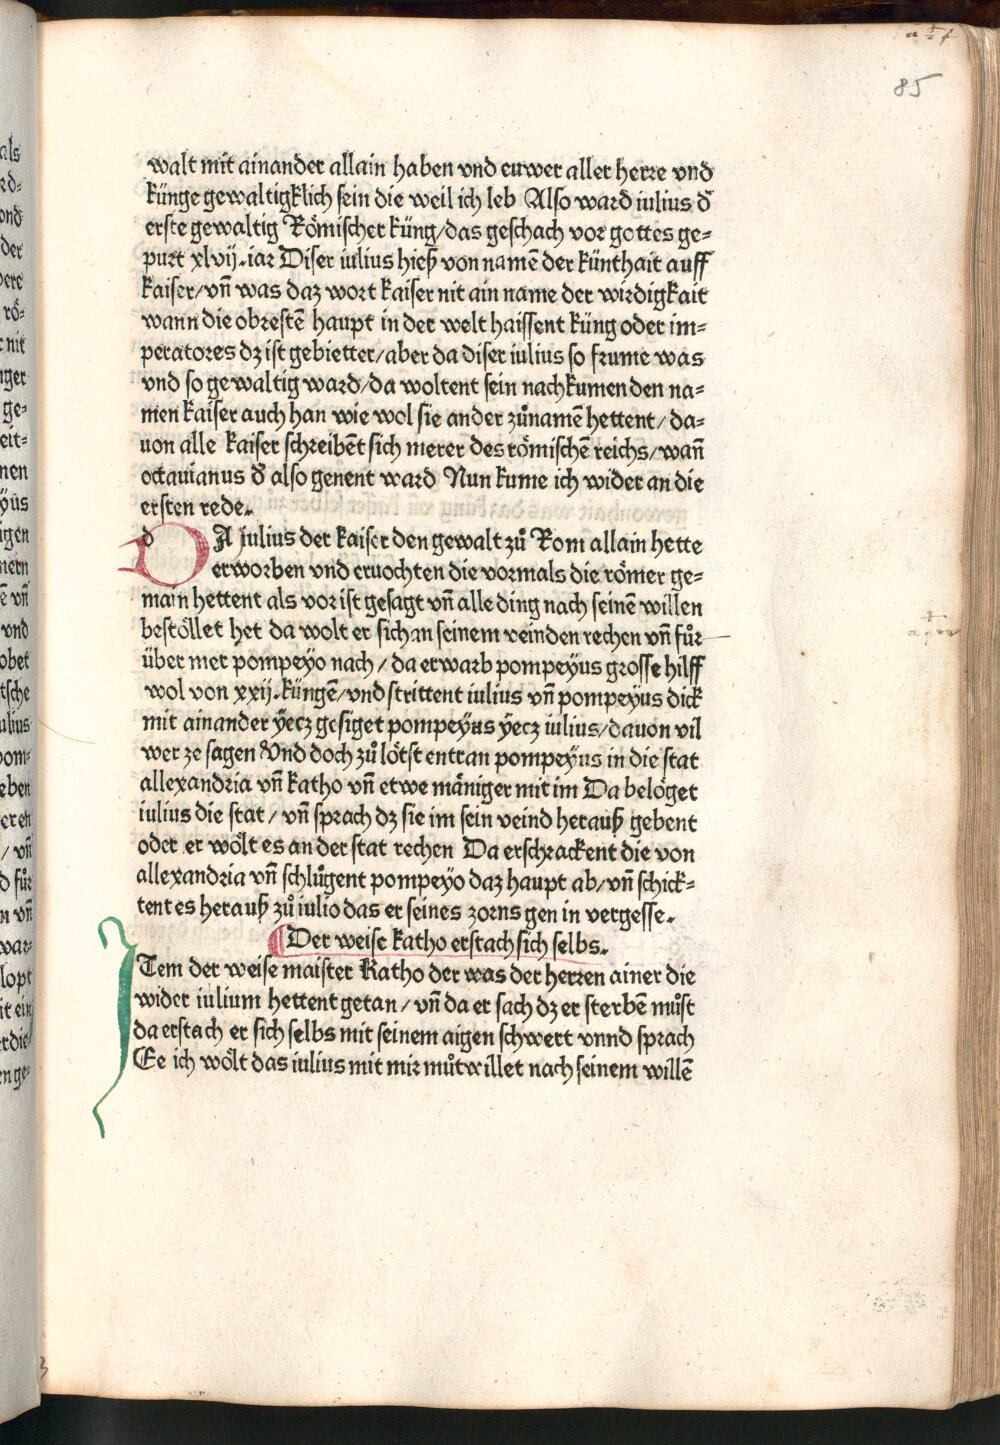 85
walt mit ainander allain haben vnd euwer aller herre vnd
künge gewaltigklich sein die weil ich leb Also ward iulius d̕
erste gewaltig Römischer küng/das geschach vor gottes ge⸗
purt xlvij.iar Diser iulius hieß von namē der künthait auff
kaiser/vn̄ was daz wort kaiser nit ain name der wirdigkait
wann die obrestē haupt in der welt haissent küng oder im⸗
peratores dz ist gebietter/aber da diser iulius so frume was
vnd so gewaltig ward/da woltent sein nachkumen den na⸗
men kaiser auch han wie wol sie ander zůnamē hettent/da⸗
uon alle kaiser schreibēt sich merer des römischē reichs/wan̄
octauianus d̕ also genent ward Nun kume ich wider an die
ersten rede.
dA iulius der kaiser den gewalt zů Rom allain hette
erworben vnd eruochten die vormals die römer ge⸗
main hettent als vor ist gesagt vn̄ alle ding nach seinē willen
bestöllet het da wolt er sich an seinem veinden rechen vn̄ fůr
über mer pompeyo nach/da erwarb pompeÿus grosse hilff
wol von xxij.küngē/vnd strittent iulius vn̄ pompeÿus dick
mit ainander ÿecz gesiget pompeÿus ÿecz iulius/dauon vil
wer ze sagen Vnd doch zů lötst entran pompeÿus in die stat
allexandria vn̄ katho vn̄ etwe mäniger mit im Da belöget
iulius die stat/vn̄ sprach dz sie im sein veind herauß gebent
oder er wölt es an der stat rechen Da erschrackent die von
allexandria vn̄ schlůgent pompeÿo daz haupt ab/vn̄ schick⸗
tent es herauß zů iulio das er seines zorns gen in vergesse.
Der weise katho erstach sich selbs.
ITem der weise maister Katho der was der herren ainer die
wider iulium hettent getan/vn̄ da er sach dz er sterbē můst
da erstach er sich selbs mit seinem aigen schwert vnnd sprach
Ee ich wölt das iulius mit mir můtwillet nach seinem willē